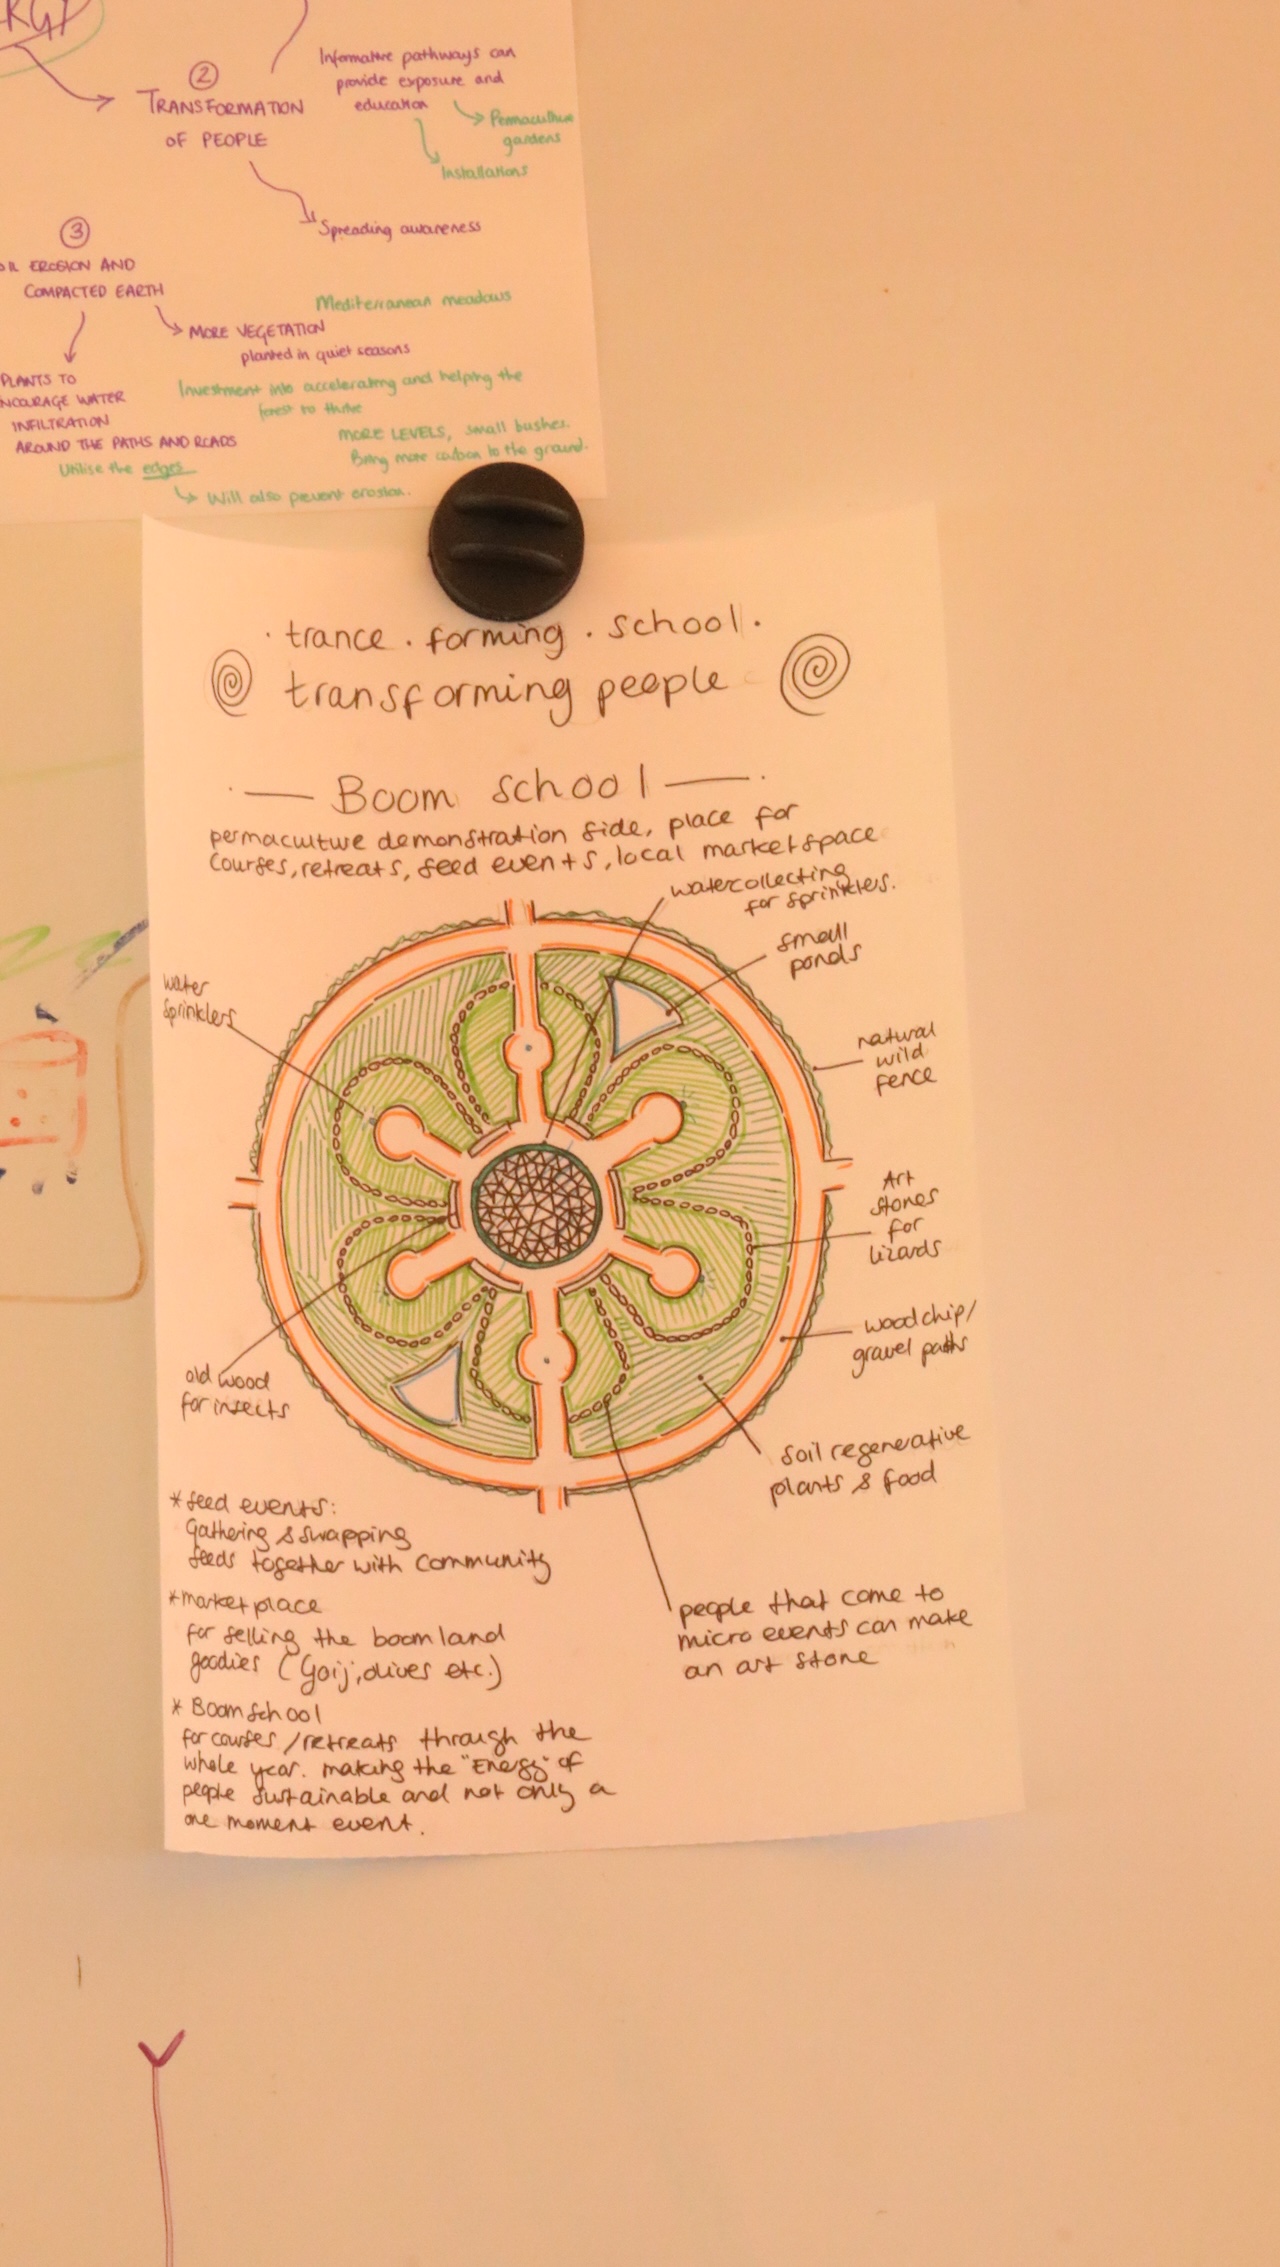 ②
TRANSFORMATION
OF PEOPLE
Informative pathways can
provide exposure and
education
Permaculture
gardens
Installations
Spreading awareness
③
EROSION AND
COMPACTED EARTH
MORE VEGETATION
planted in quiet seasons
Mediterranean meadows
PLANTS TO
WATER
INFILTRATION
AROUND THE PATHS AND ROADS
Utilise the edges
Will also prevent erosion.
Investment into accelerating and helping the
forest to thrive
MORE LEVELS, small bushes.
Bring more carbon to the ground.
· trance . forming . school .
transforming people
Boom school
permaculture demonstration side, place for
courses, retreats, seed events, local marketspace
watercollecting
for sprinklers.
small
ponds
water
sprinklers
natural
wild
fence
Art
stones
for
lizards
woodchip/
gravel paths
old wood
for insects
soil regenerative
plants & food
* seed events:
Gathering & swapping
seeds together with community
* market place
for selling the boomland
goodies (Goij, olives etc.)
people that come to
micro events can make
an art stone
* Boomschool
for courses/retreats through the
whole year. making the "Energy" of
people sustainable and not only a
one moment event.